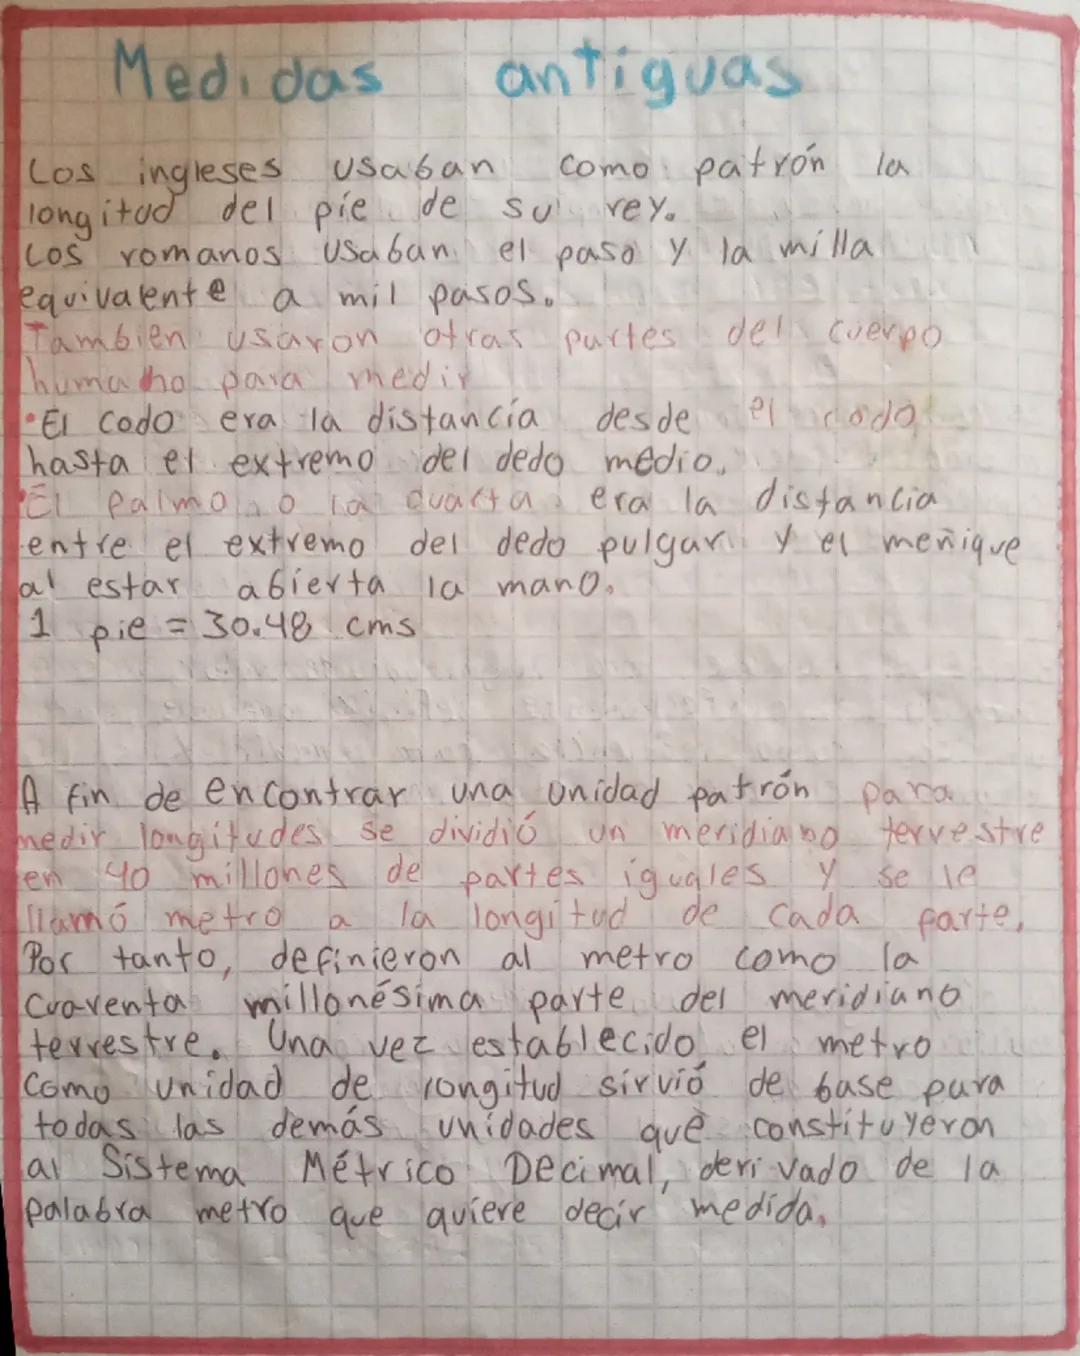 Medidas antiguas
Los ingleses usaban como patrón la
longitud del pie de su rey.
Los romanos usaban el paso y la milla
equivalente a mil pasos.
Tambien usaron otras partes del cuerpo
humano para medir
•El codo era la distancia desde el codo
hasta el extremo del dedo medio.
•El palmo o la cuarta era la distancia
entre el extremo del dedo pulgar y el meñique
al estar abierta la mano.
1 pie = 30.48 cms
A fin de encontrar una unidad patrón para
medir longitudes se dividió un meridiano terrestre
en 40 millones de partes iguales y se le
llamó metro a la longitud de cada parte.
Por tanto, definieron al metro como la
cuarenta millonésima parte del meridiano
terrestre. Una vez establecido el metro
como unidad de longitud sirvió de base para
todas las demás unidades que constituyeron
al Sistema Métrico Decimal, derivado de la
palabra metro que quiere decir medida.